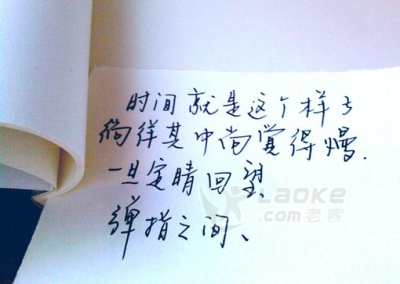 时间就是这个样子
徜徉其中尚觉得慢.
一旦定睛回望、
弹指之间、
Laoke
.com老客